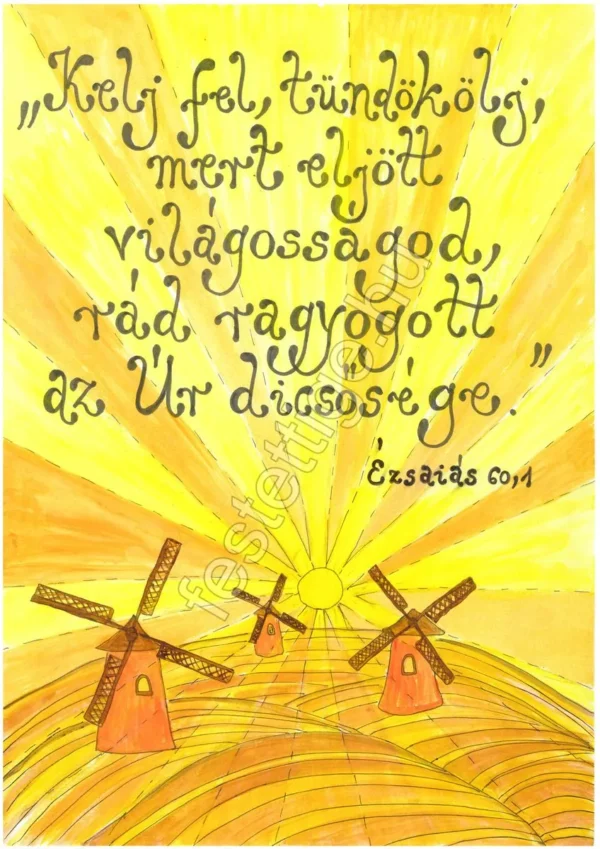 „Kelj fel, tündökölj,
mert eljött
világosságod,
rád ragyogott
az Úr dicsősége.”
Ézsaiás 60,1
festettige.hu